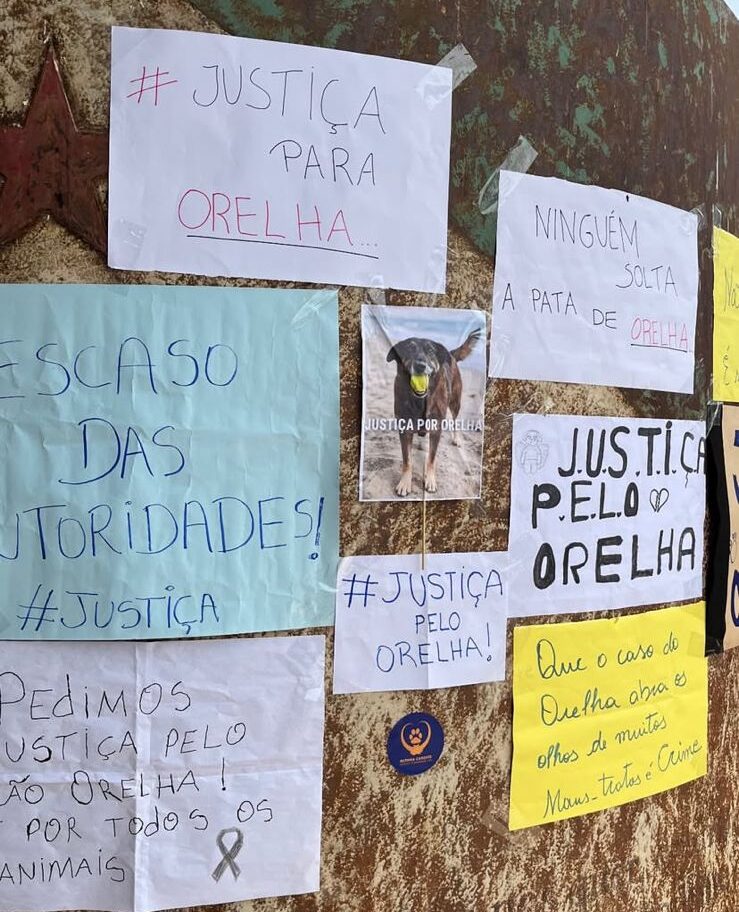 # JUSTIÇA
PARA
ORELHA...
NINGUÉM
SOLTA
A PATA DE
ORELHA
ESCASO
DAS
UTORIDADES!
#JUSTIÇA
JUSTIÇA POR ORELHA
J.U.S.T.I.ÇA
P.E.L.O
ORELHA
#JUSTIÇA
PELO
ORELHA!
PEDIMOS
USTIÇA PELO
ÃO ORELHA!
POR TODOS OS
ANIMAIS
Que o caso do
Orelha abra os
olhos de muitos
Maus-tratos é Crime